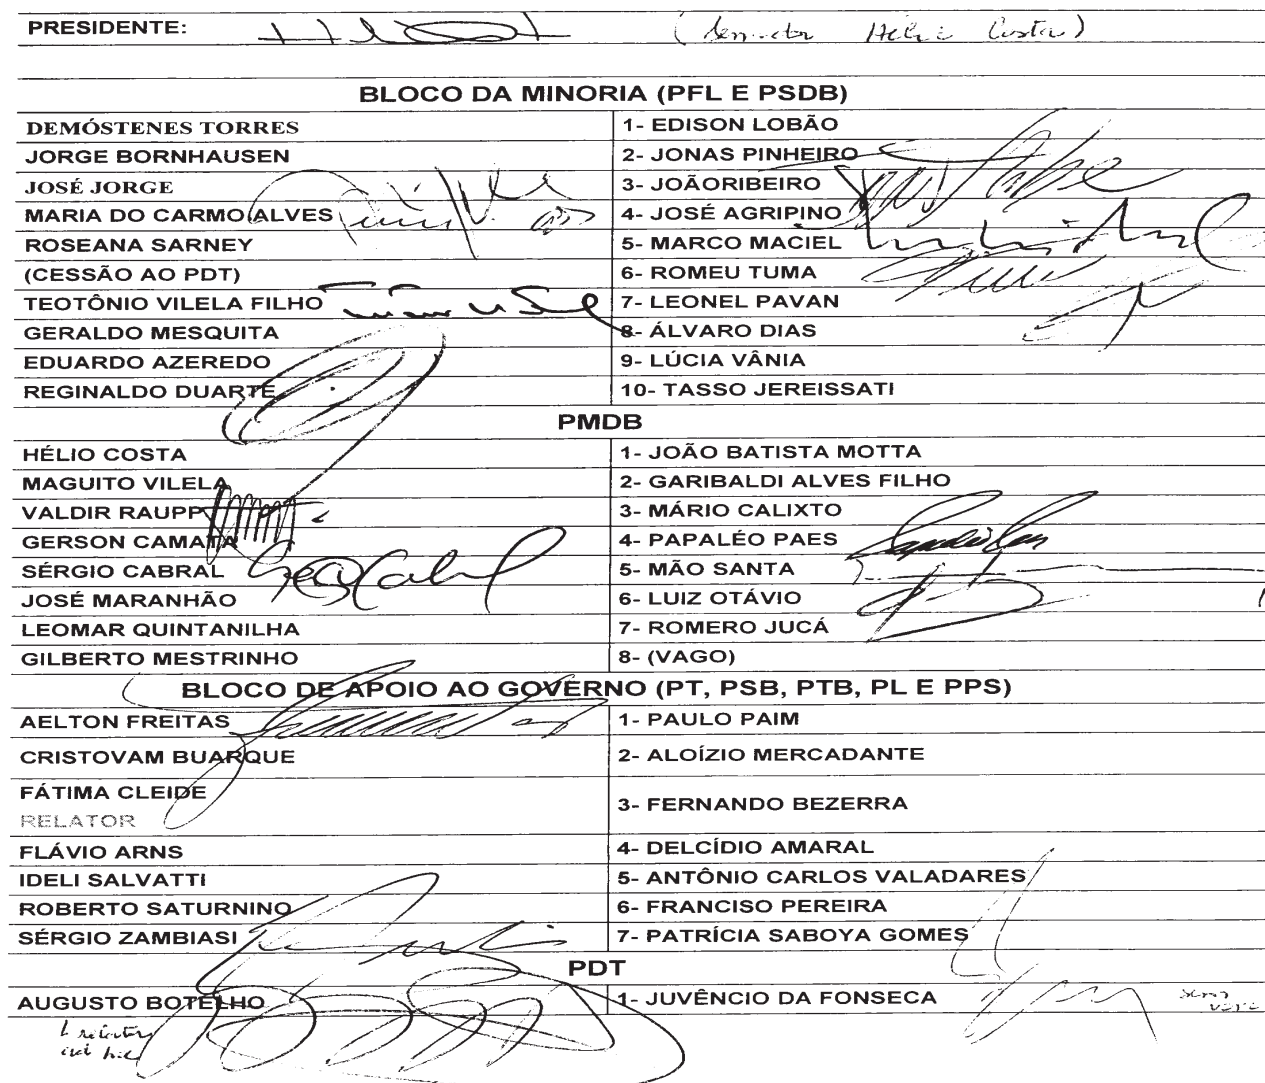 PRESIDENTE: (Senador Hélio Costa)
BLOCO DA MINORIA (PFL E PSDB)
DEMÓSTENES TORRES 1- EDISON LOBÃO
JORGE BORNHAUSEN 2- JONAS PINHEIRO
JOSÉ JORGE 3- JOÃORIBEIRO
MARIA DO CARMO ALVES 4- JOSÉ AGRIPINO
ROSEANA SARNEY 5- MARCO MACIEL
(CESSÃO AO PDT) 6- ROMEU TUMA
TEOTÔNIO VILELA FILHO 7- LEONEL PAVAN
GERALDO MESQUITA 8- ÁLVARO DIAS
EDUARDO AZEREDO 9- LÚCIA VÂNIA
REGINALDO DUARTE 10- TASSO JEREISSATI
PMDB
HÉLIO COSTA 1- JOÃO BATISTA MOTTA
MAGUITO VILELA 2- GARIBALDI ALVES FILHO
VALDIR RAUPP 3- MÁRIO CALIXTO
GERSON CAMATA 4- PAPALÉO PAES
SÉRGIO CABRAL 5- MÃO SANTA
JOSÉ MARANHÃO 6- LUIZ OTÁVIO
LEOMAR QUINTANILHA 7- ROMERO JUCÁ
GILBERTO MESTRINHO 8- (VAGO)
BLOCO DE APOIO AO GOVERNO (PT, PSB, PTB, PL E PPS)
AELTON FREITAS 1- PAULO PAIM
CRISTOVAM BUARQUE 2- ALOÍZIO MERCADANTE
FÁTIMA CLEIDE 3- FERNANDO BEZERRA
RELATOR
FLÁVIO ARNS 4- DELCÍDIO AMARAL
IDELI SALVATTI 5- ANTÔNIO CARLOS VALADARES
ROBERTO SATURNINO 6- FRANCISO PEREIRA
SÉRGIO ZAMBIASI 7- PATRÍCIA SABOYA GOMES
PDT
AUGUSTO BOTELHO 1- JUVÊNCIO DA FONSECA